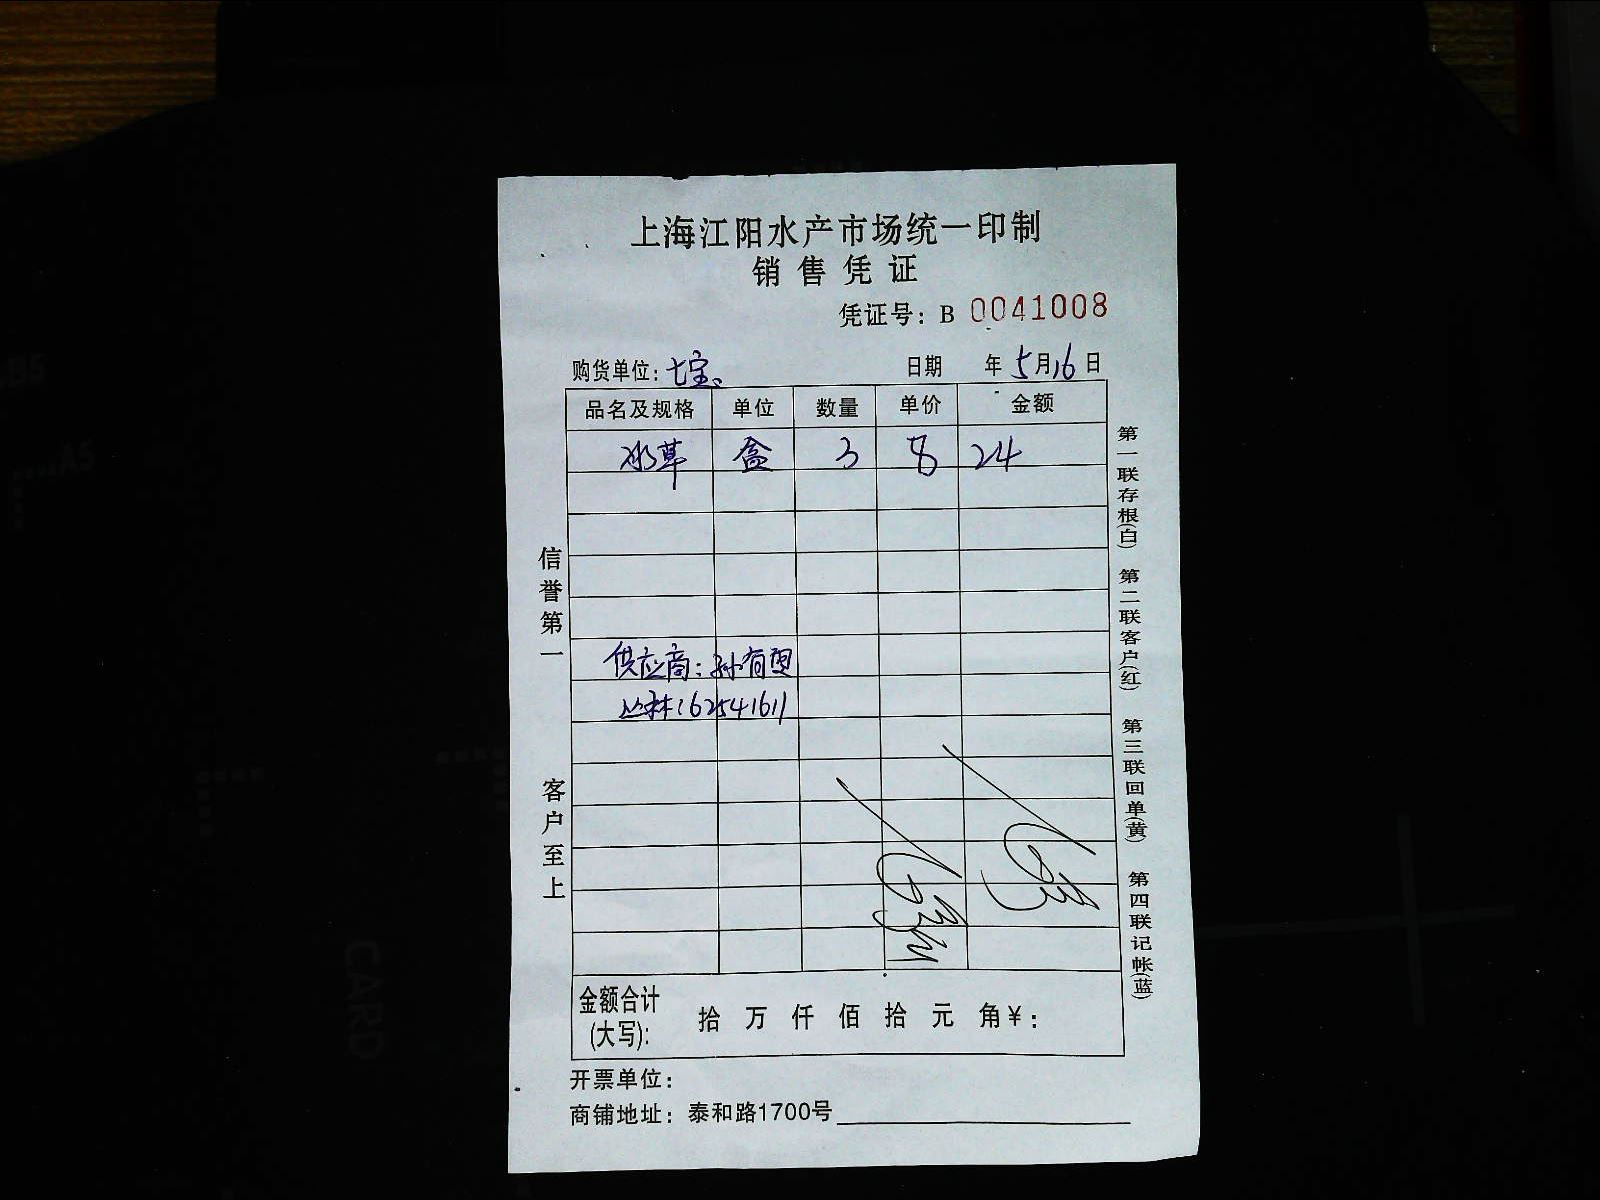 上海江阳水产市场统一印制
销售凭证
凭证号：B 0041008
购货单位：七宝 日期 年5月16日
品名及规格 单位 数量 单价 金额
水草 盒 3 8 24
供应商：孙有
162541611
信誉第一
客户至上
第一联存根(白) 第二联客户(红) 第三联回单(黄) 第四联记帐(蓝)
金额合计
(大写)： 拾 万 仟 佰 拾 元 角￥：
开票单位：
商铺地址：泰和路1700号
CARD
A5